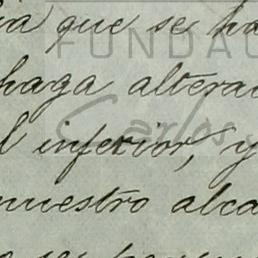 que se ha
FUNDAC
haga altera
Carlos
l inferior, y
nuestro alca